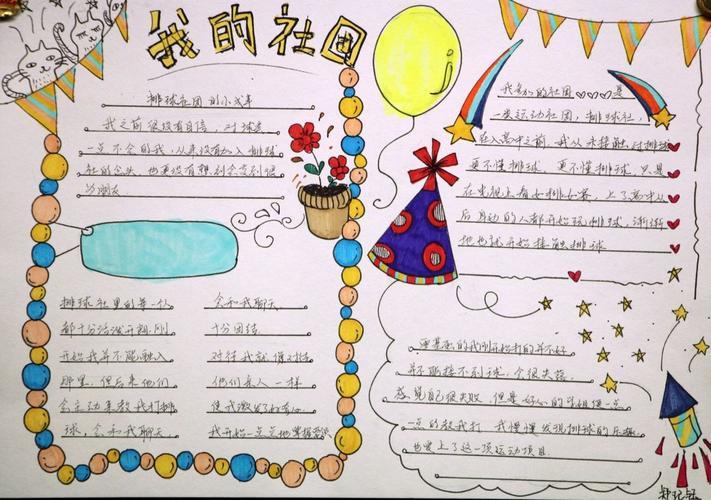 我的社团
排球社团的小成年
我之前很没有自信，对球类
一点不会的我，从来没有加入排球
社的念头，也更没有想到会交到很
多朋友
排球社里的每一个人
都十分活泼开朗，刚
开始我并不能融入
那里，但后来他们
会主动来教我打排
球，会和我聊天
会和我聊天
十分团结
对待我就像对待
他们家人一样
使我激发了好奇心
我开始一点点地掌握
我参加的社团是
一类运动社团，排球社，
在入高中之前，我从未接触过排球
更不懂排球，更不懂排球，只是
在电视上看女排比赛，上了高中以
后身边的人都开始玩排球，渐渐
地也就开始接触排球
的我刚开始打的并不好
并不能接不到球，会很失落
感觉自己很失败，但是好心的学姐便一点
一点的教我打，我慢慢发现排球的乐趣
也爱上了这一项运动项目